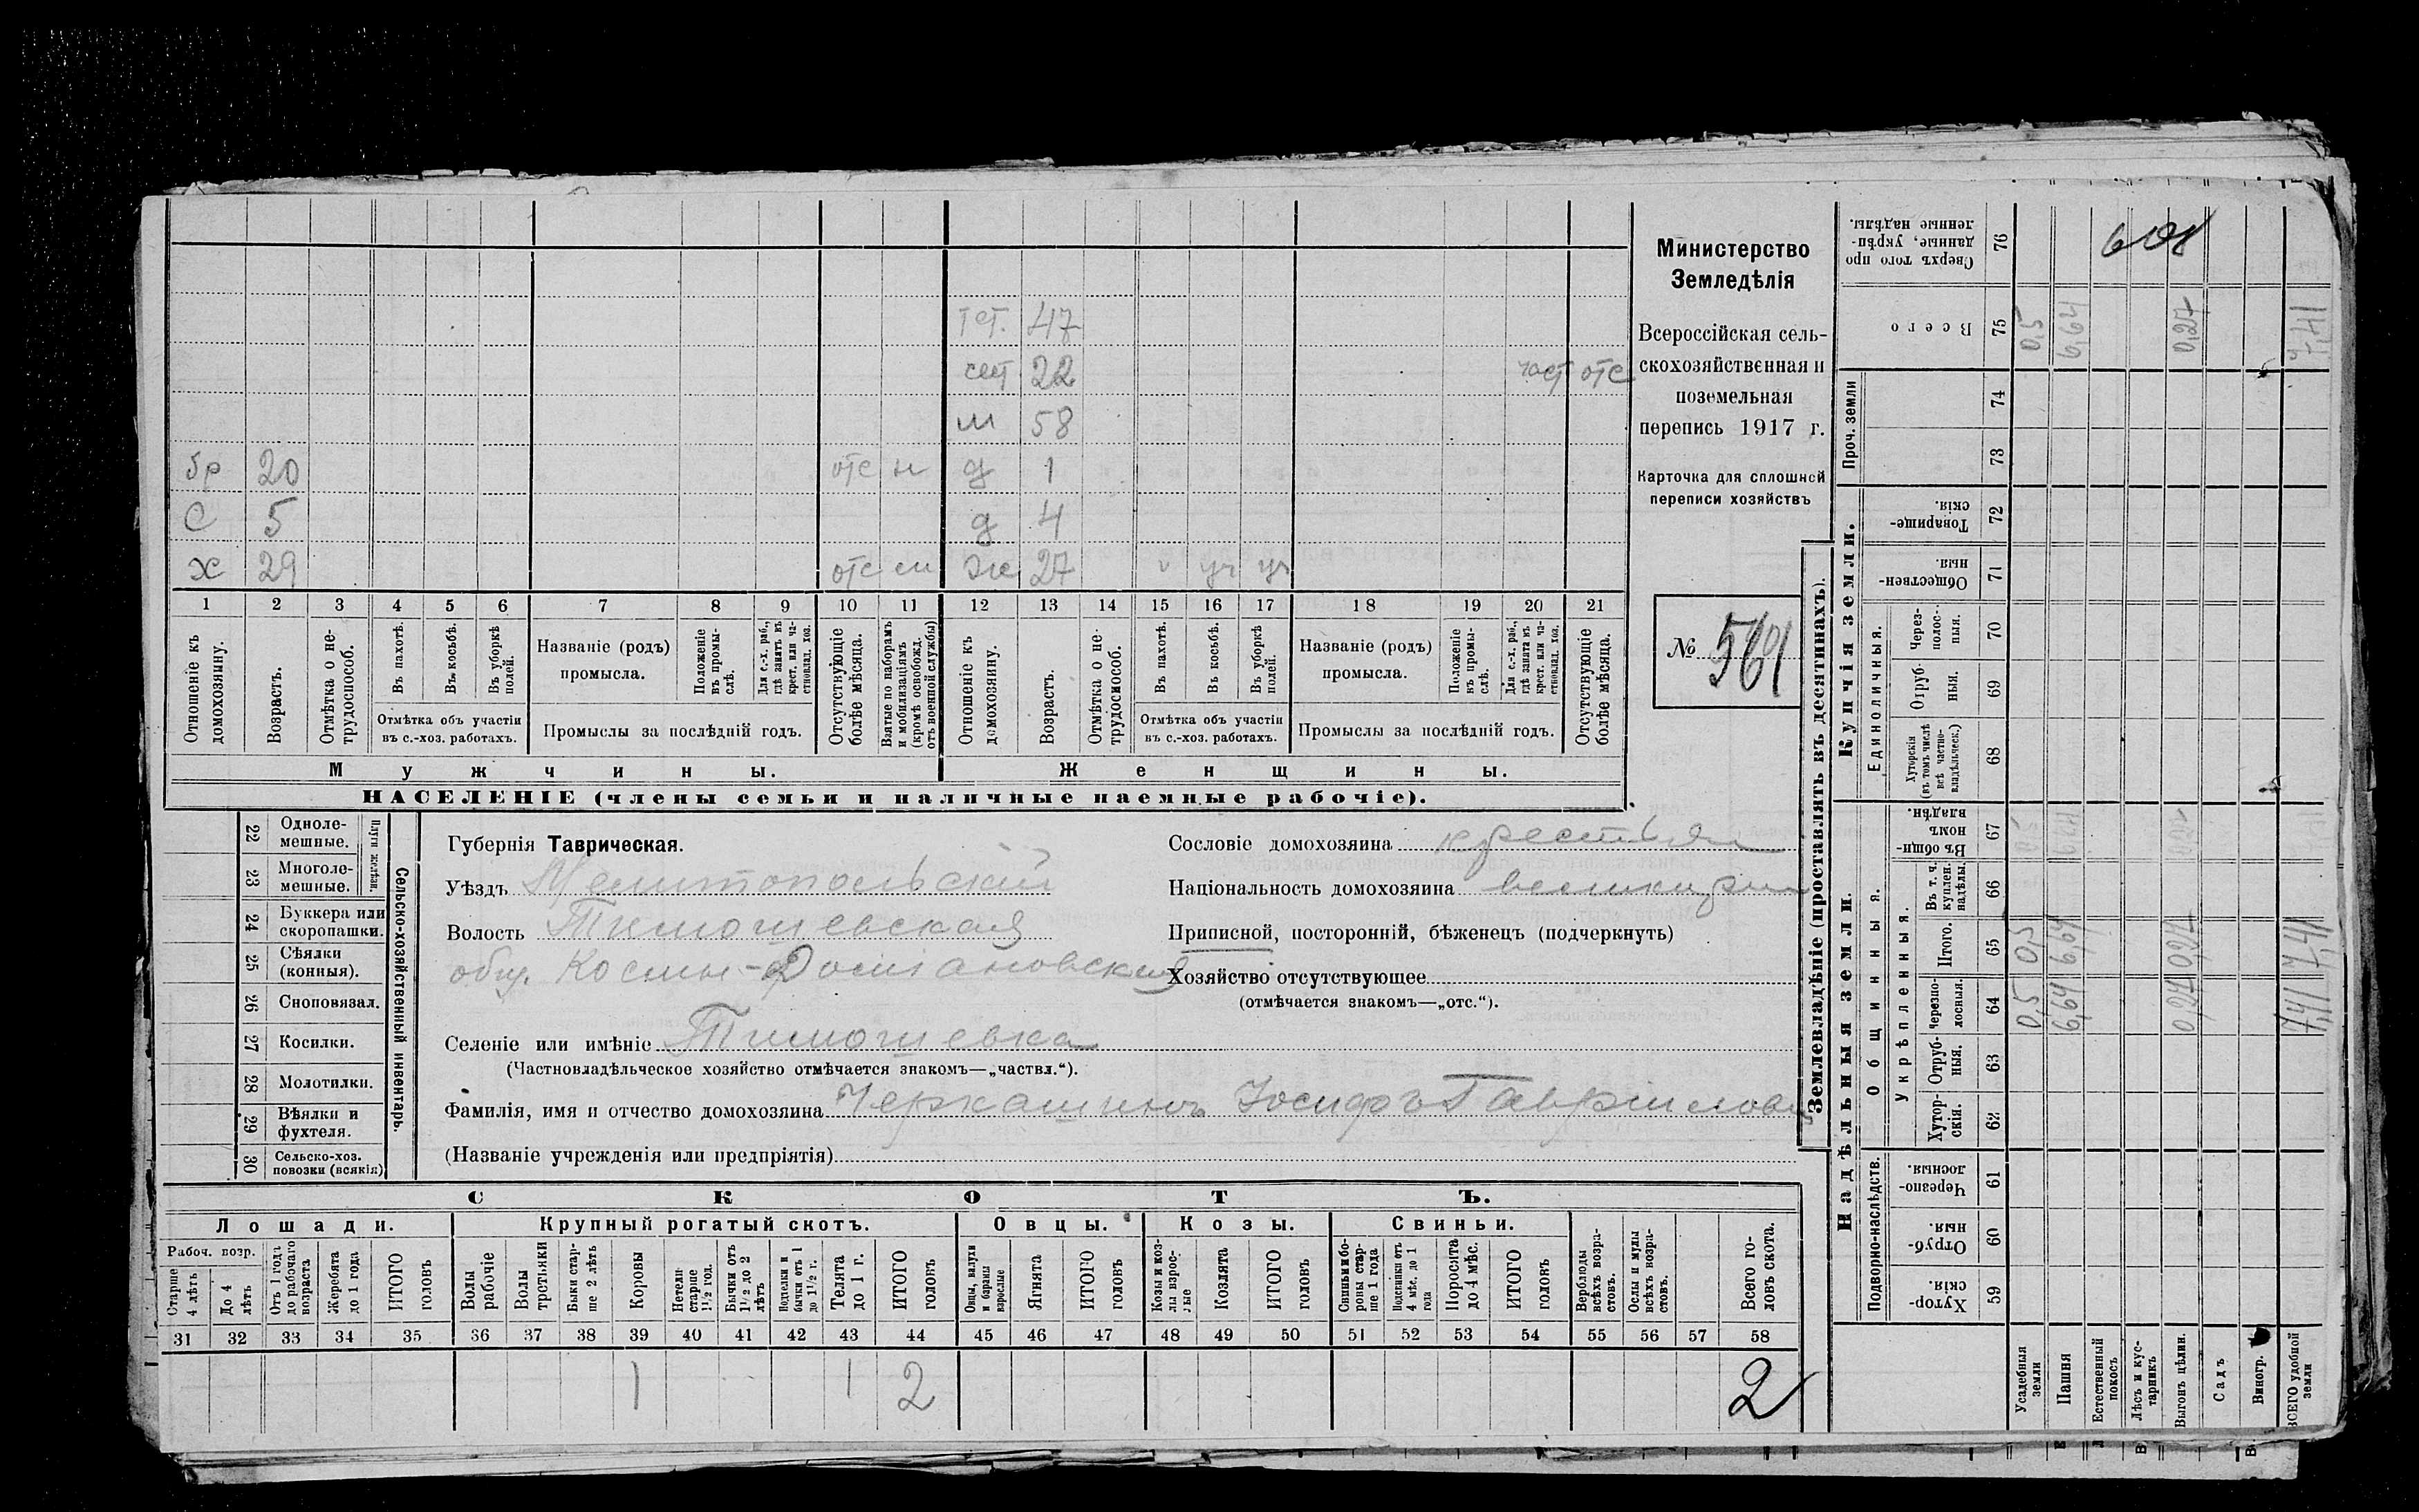 тет. 47
сест 22 част отс
м 58
бр 20 отс н д 1
с 5 д 4
х 29 отс ж 27 уч уч
1 2 3 4 5 6 7 8 9 10 11 12 13 14 15 16 17 18 19 20 21
Отношеніе къ домохозяину.
Возрастъ.
Отмѣтка о нетрудоспособ.
Въ пахотѣ.
Въ косьбѣ.
Въ уборкѣ полей.
Отмѣтка объ участіи въ с.-хоз. работахъ.
Названіе (родъ) промысла.
Положеніе въ промыслѣ.
Для с.-х. раб., гдѣ занятъ въ крест. или частновлад. хоз.
Промыслы за послѣдній годъ.
Отсутствующіе болѣе мѣсяца.
Взятые по наборамъ и мобилизаціямъ (кромѣ освобожд. отъ военной службы)
Отношеніе къ домохозяину.
Возрастъ.
Отмѣтка о нетрудоспособ.
Въ пахотѣ.
Въ косьбѣ.
Въ уборкѣ полей.
Отмѣтка объ участіи въ с.-хоз. работахъ.
Названіе (родъ) промысла.
Положеніе въ промыслѣ.
Для с.-х. раб., гдѣ занята въ крест. или частновлад. хоз.
Промыслы за послѣдній годъ.
Отсутствующіе болѣе мѣсяца.
Мужчины. Женщины.
НАСЕЛЕНІЕ (члены семьи и наличные наемные рабочіе).
Министерство
Земледѣлія
Всероссійская сель-
скохозяйственная и
поземельная
перепись 1917 г.
Карточка для сплошной
переписи хозяйствъ
№ 561
Сельско-хозяйственный инвентарь.
Плуги желѣзн.
22 Одноле-
мешные.
23 Многоле-
мешные.
24 Буккера или
скоропашки.
25 Сѣялки
(конныя).
26 Сноповязал.
27 Косилки.
28 Молотилки.
29 Вѣялки и
фухтеля.
30 Сельско-хоз.
повозки (всякія)
Губернія Таврическая.
Уѣздъ Мелитопольскій
Волость Тимошевская
общ. Космы-Доміановская
Селеніе или имѣніе Тимошевка
(Частновладѣльческое хозяйство отмѣчается знакомъ—„частвл.“).
Фамилія, имя и отчество домохозяина Черкашинъ Іосифъ Гавриилови
(Названіе учрежденія или предпріятія)
Сословіе домохозяина крестьян
Національность домохозяина
Приписной, посторонній, бѣженецъ (подчеркнуть)
Хозяйство отсутствующее
(отмѣчается знакомъ—„отс.“).
СКОТЪ.
Лошади. Крупный рогатый скотъ. Овцы. Козы. Свиньи.
Рабоч. возр.
Старше 4 лѣтъ
До 4 лѣтъ
Отъ 1 года до рабочаго возраста
Жеребята до 1 года
ИТОГО головъ
Волы рабочіе
Волы третьяки
Быки старше 2 лѣтъ
Коровы
Нетели старше 1½ год.
Бычки отъ 1½ до 2 лѣтъ
Подтелки и бычки отъ 1 до 1½ г.
Телята до 1 г.
ИТОГО головъ
Овцы, валухи и бараны взрослые
Ягнята
ИТОГО головъ
Козы и козлы взрослые
Козлята
ИТОГО головъ
Свиньи боровы старше 1 года
Подсвинки отъ 4 мѣс. до 1 года
Поросята до 4 мѣс.
ИТОГО головъ
Верблюды всѣхъ возрастовъ.
Ослы и мулы всѣхъ возрастовъ.
Всего головъ скота.
31 32 33 34 35 36 37 38 39 40 41 42 43 44 45 46 47 48 49 50 51 52 53 54 55 56 57 58
1 1 2 2
Землевладѣніе (проставлять въ десятинахъ).
Надѣльныя земли. Купчія земли. Проч. земли
Подворно-наслѣдств.
Общинныя.
Укрѣпленныя.
Единоличныя.
Хуторскія. 59
Отрубныя. 60
Черезполосныя. 61
Хуторскія. 62
Отрубныя. 63
Черезполосныя. 64 0,5 6,64 0,27 7,41
Итого. 65 0,5 6,64 0,27 7,41
Въ т. ч. куплен. надѣлы. 66
Въ общинномъ владѣн. 67
Хуторскія (въ томъ числѣ всѣ частновладѣльческ.) 68
Отрубныя. 69
Черезполосныя. 70
Общественныя. 71
Товарищескія. 72
73
74
Всего 75 0,5 6,64 0,27 7,41
Сверхъ того проданные, укрѣпленные надѣлы. 76
Усадебныя земли
Пашня
Естественный покосъ
Лѣсъ и кустарникъ
Выгонъ цѣлин.
Садъ
Виногр.
ВСЕГО удобной земли